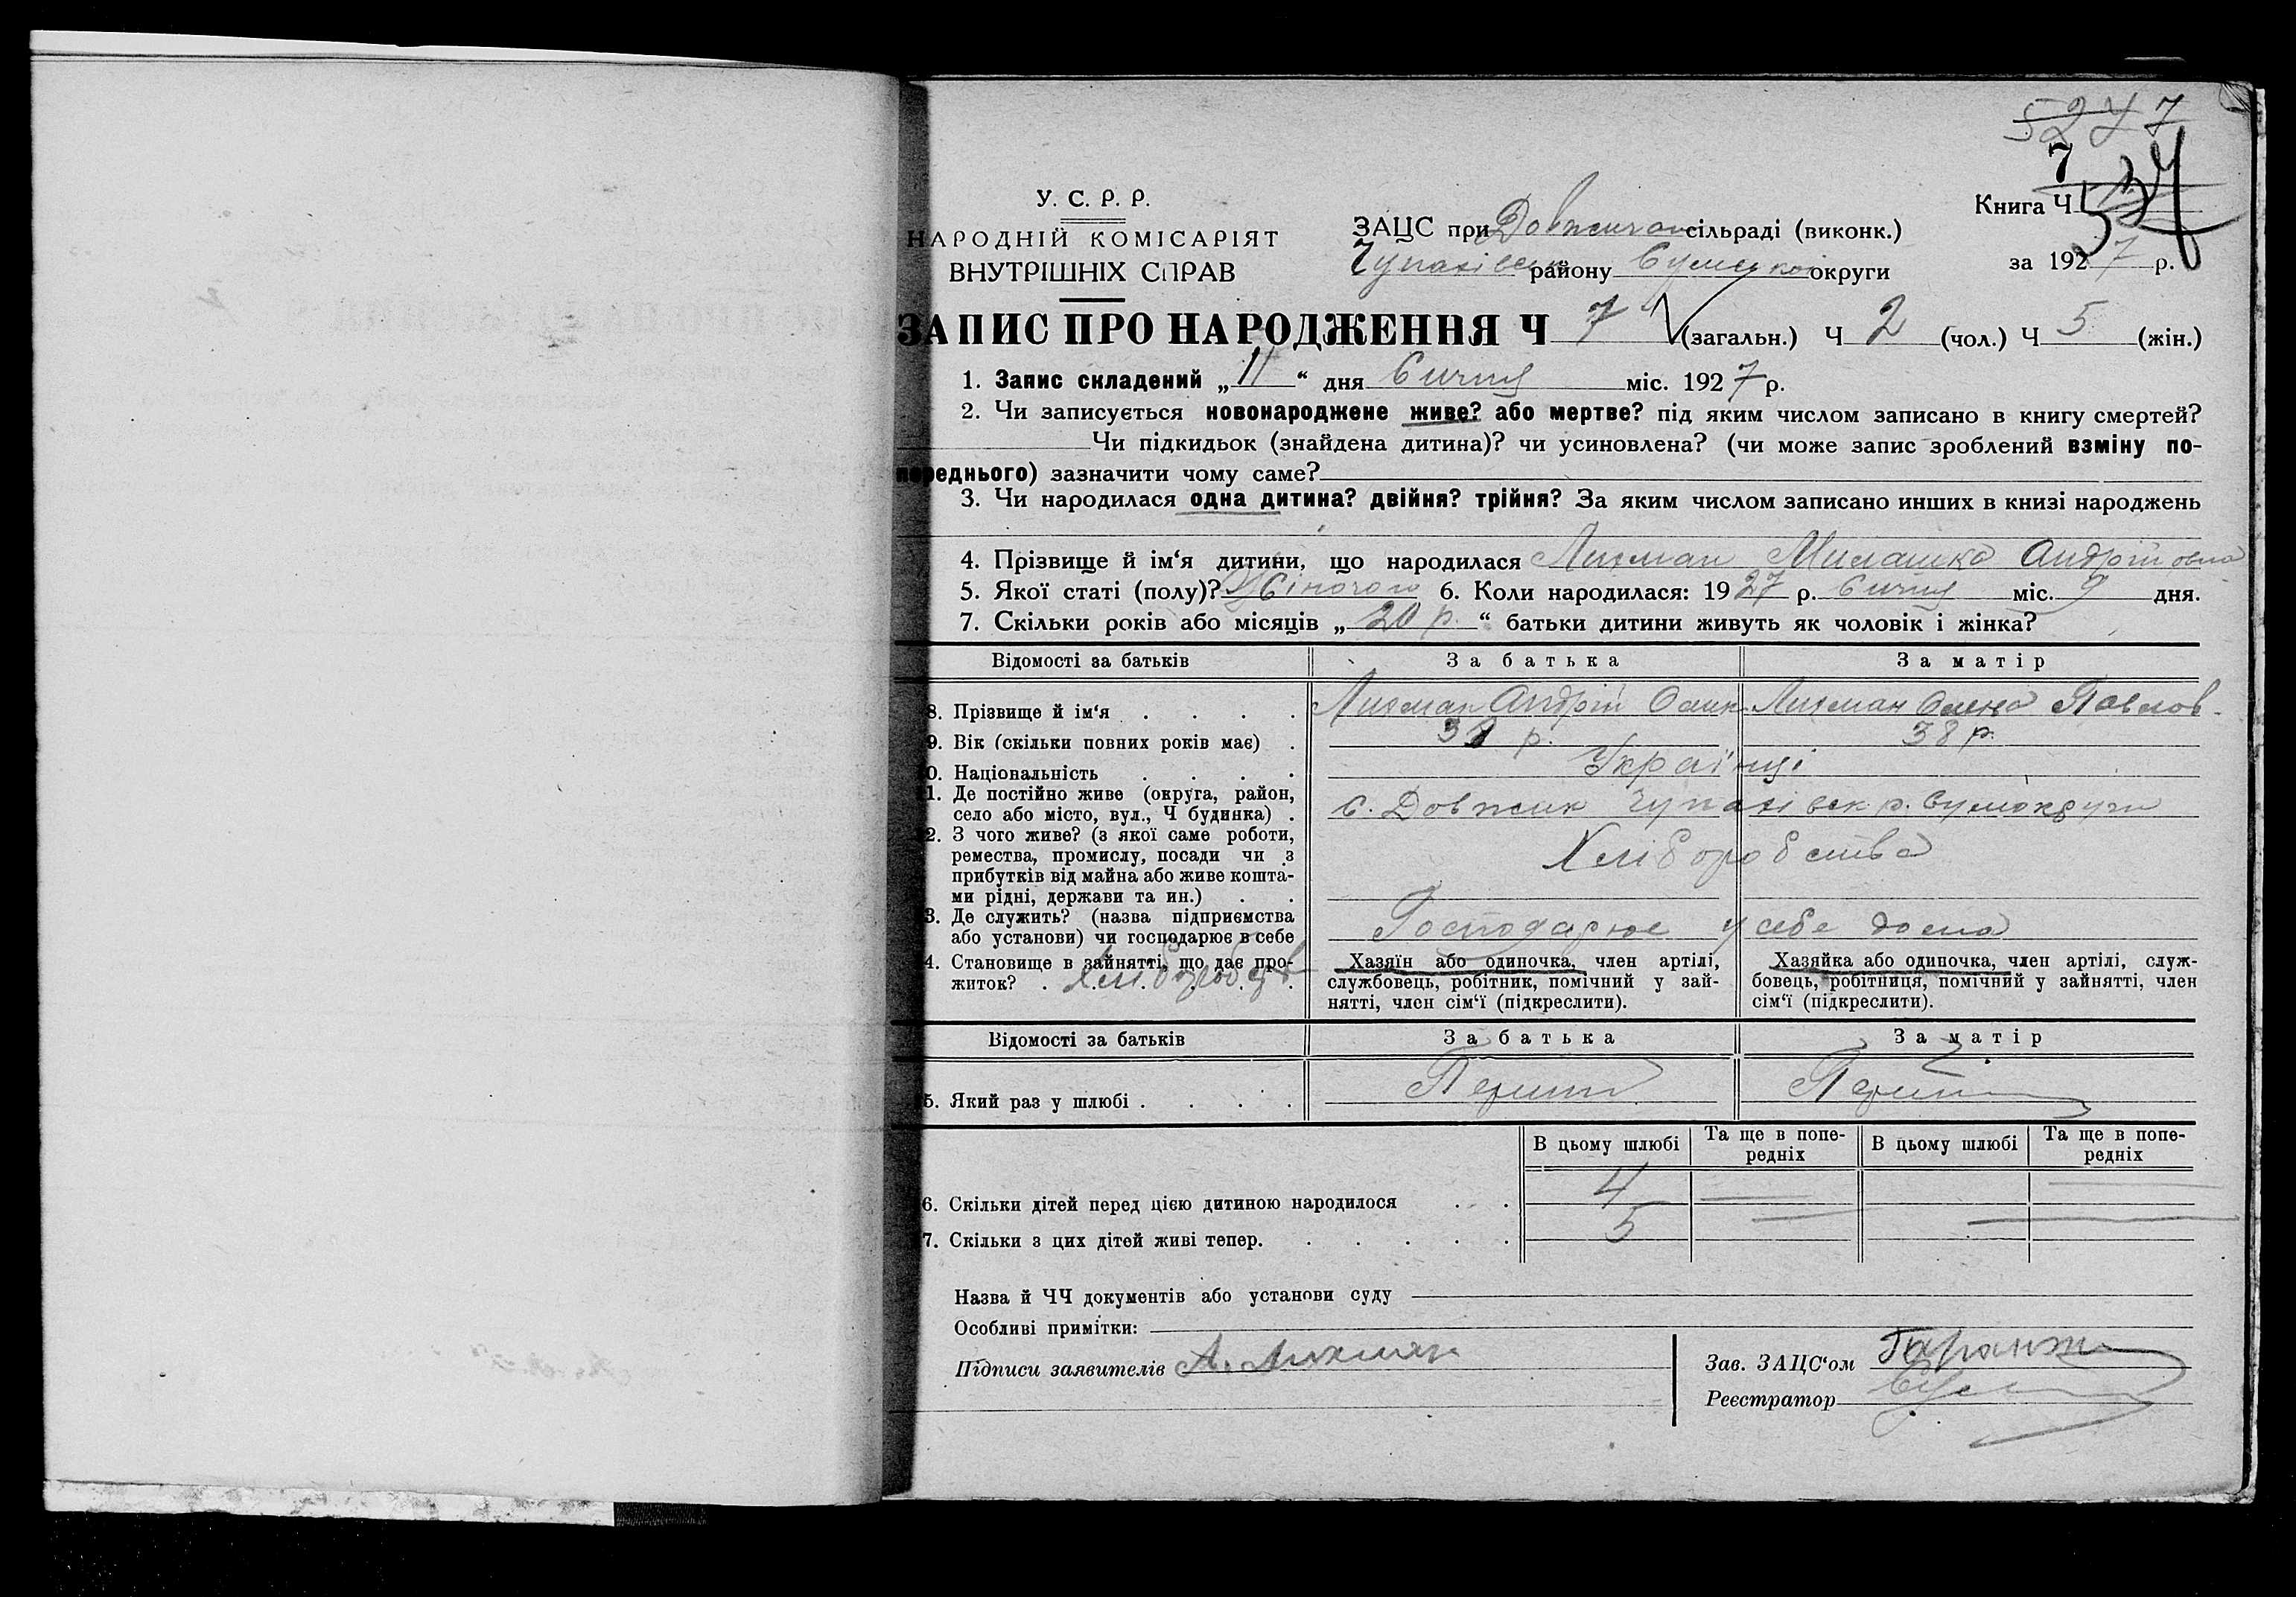 5277
7
537
У. С. Р. Р.
НАРОДНІЙ КОМІСАРІЯТ
ВНУТРІШНІХ СПРАВ
Книга Ч
ЗАЦС при Довжичан сільраді (виконк.)
Чупахівськ району Сумської округи
за 1927 р.
ЗАПИС ПРО НАРОДЖЕННЯ Ч 7 (загальн.) Ч 2 (чол.) Ч 5 (жін.)
1. Запис складений „11“ дня Січня міс. 1927 р.
2. Чи записується новонароджене живе? або мертве? під яким числом записано в книгу смертей?
Чи підкидьок (знайдена дитина)? чи усиновлена? (чи може запис зроблений взміну по-
переднього) зазначити чому саме?
3. Чи народилася одна дитина? двійня? трійня? За яким числом записано инших в книзі народжень
4. Прізвище й ім‘я дитини, що народилася Лихман Милашка Андріївна
5. Якої статі (полу)? Жіночого 6. Коли народилася: 1927 р. Січня міс. 9 дня.
7. Скільки років або місяців „20 р.“ батьки дитини живуть як чоловік і жінка?
Відомості за батьків За батька За матір
8. Прізвище й ім‘я Лихман Андрій Лихман Олена Павлов.
9. Вік (скільки повних років має) р. 38 р.
0. Національність Українці
1. Де постійно живе (округа, район,
село або місто, вул., Ч будинка) с. Довжик Чупахівськ р. Сумокруги
2. З чого живе? (з якої саме роботи,
ремества, промислу, посади чи з
прибутків від майна або живе кошта-
ми рідні, держави та ин.) Хліборобства
3. Де служить? (назва підприємства
або установи) чи господарює в себе Господарює у себе дома
4. Становище в зайнятті, що дає про-
житок? Хлібороб
Хазяїн або одиночка, член артілі,
службовець, робітник, помічний у зай-
нятті, член сім‘ї (підкреслити).
Хазяйка або одиночка, член артілі, служ-
бовець, робітниця, помічний у зайнятті, член
сім‘ї (підкреслити).
Відомості за батьків За батька За матір
5. Який раз у шлюбі Перший Перший
В цьому шлюбі Та ще в попе-
редніх В цьому шлюбі Та ще в попе-
редніх
6. Скільки дітей перед цією дитиною народилося 4
7. Скільки з цих дітей живі тепер. 5
Назва й ЧЧ документів або установи суду
Особливі примітки:
Підписи заявителів А. Лихман
Зав. ЗАЦС‘ом Гаранж
Реєстратор